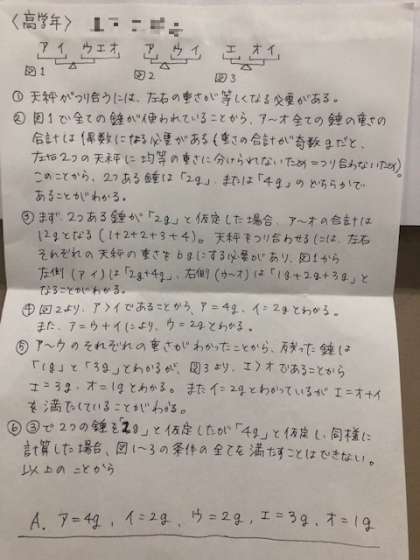 〈高学年〉
アイ ウエオ ア ウイ エ オイ
図1 図2 図3
① 天秤がつり合うには、左右の重さが等しくなる必要がある。
② 図1で全ての錘が使われていることから、ア〜オ全ての錘の重さの
合計は偶数になる必要がある(重さの合計が奇数gだと、
左右2つの天秤に均等の重さに分けられないため=つり合わないため)。
このことから、2つある錘は「2g」または「4g」のどちらかで
あることがわかる。
③ まず、2つある錘が「2g」と仮定した場合、ア〜オの合計は
12gとなる(1+2+2+3+4)。天秤をつり合わせるには、左右
それぞれの天秤の重さを6gにする必要があり、図1から
左側(アイ)は「2g+4g」、右側(ウ〜オ)は「1g+2g+3g」と
なることがわかる。
④ 図2より、ア>イであることから、ア=4g、イ=2gとわかる。
また、ア=ウ+イにより、ウ=2gとわかる。
⑤ ア〜ウのそれぞれの重さがわかったことから、残った錘は
「1g」と「3g」とわかるが、図3より、エ>オであることから
エ=3g、オ=1gとわかる。またイ=2gとわかっているがエ=オ+イ
を満たしていることがわかる。
⑥ ③で2つの錘を2gと仮定したが「4g」と仮定し、同様に
計算した場合、図1〜3の条件の全てを満たすことはできない。
以上のことから
A. ア=4g、イ=2g、ウ=2g、エ=3g、オ=1g